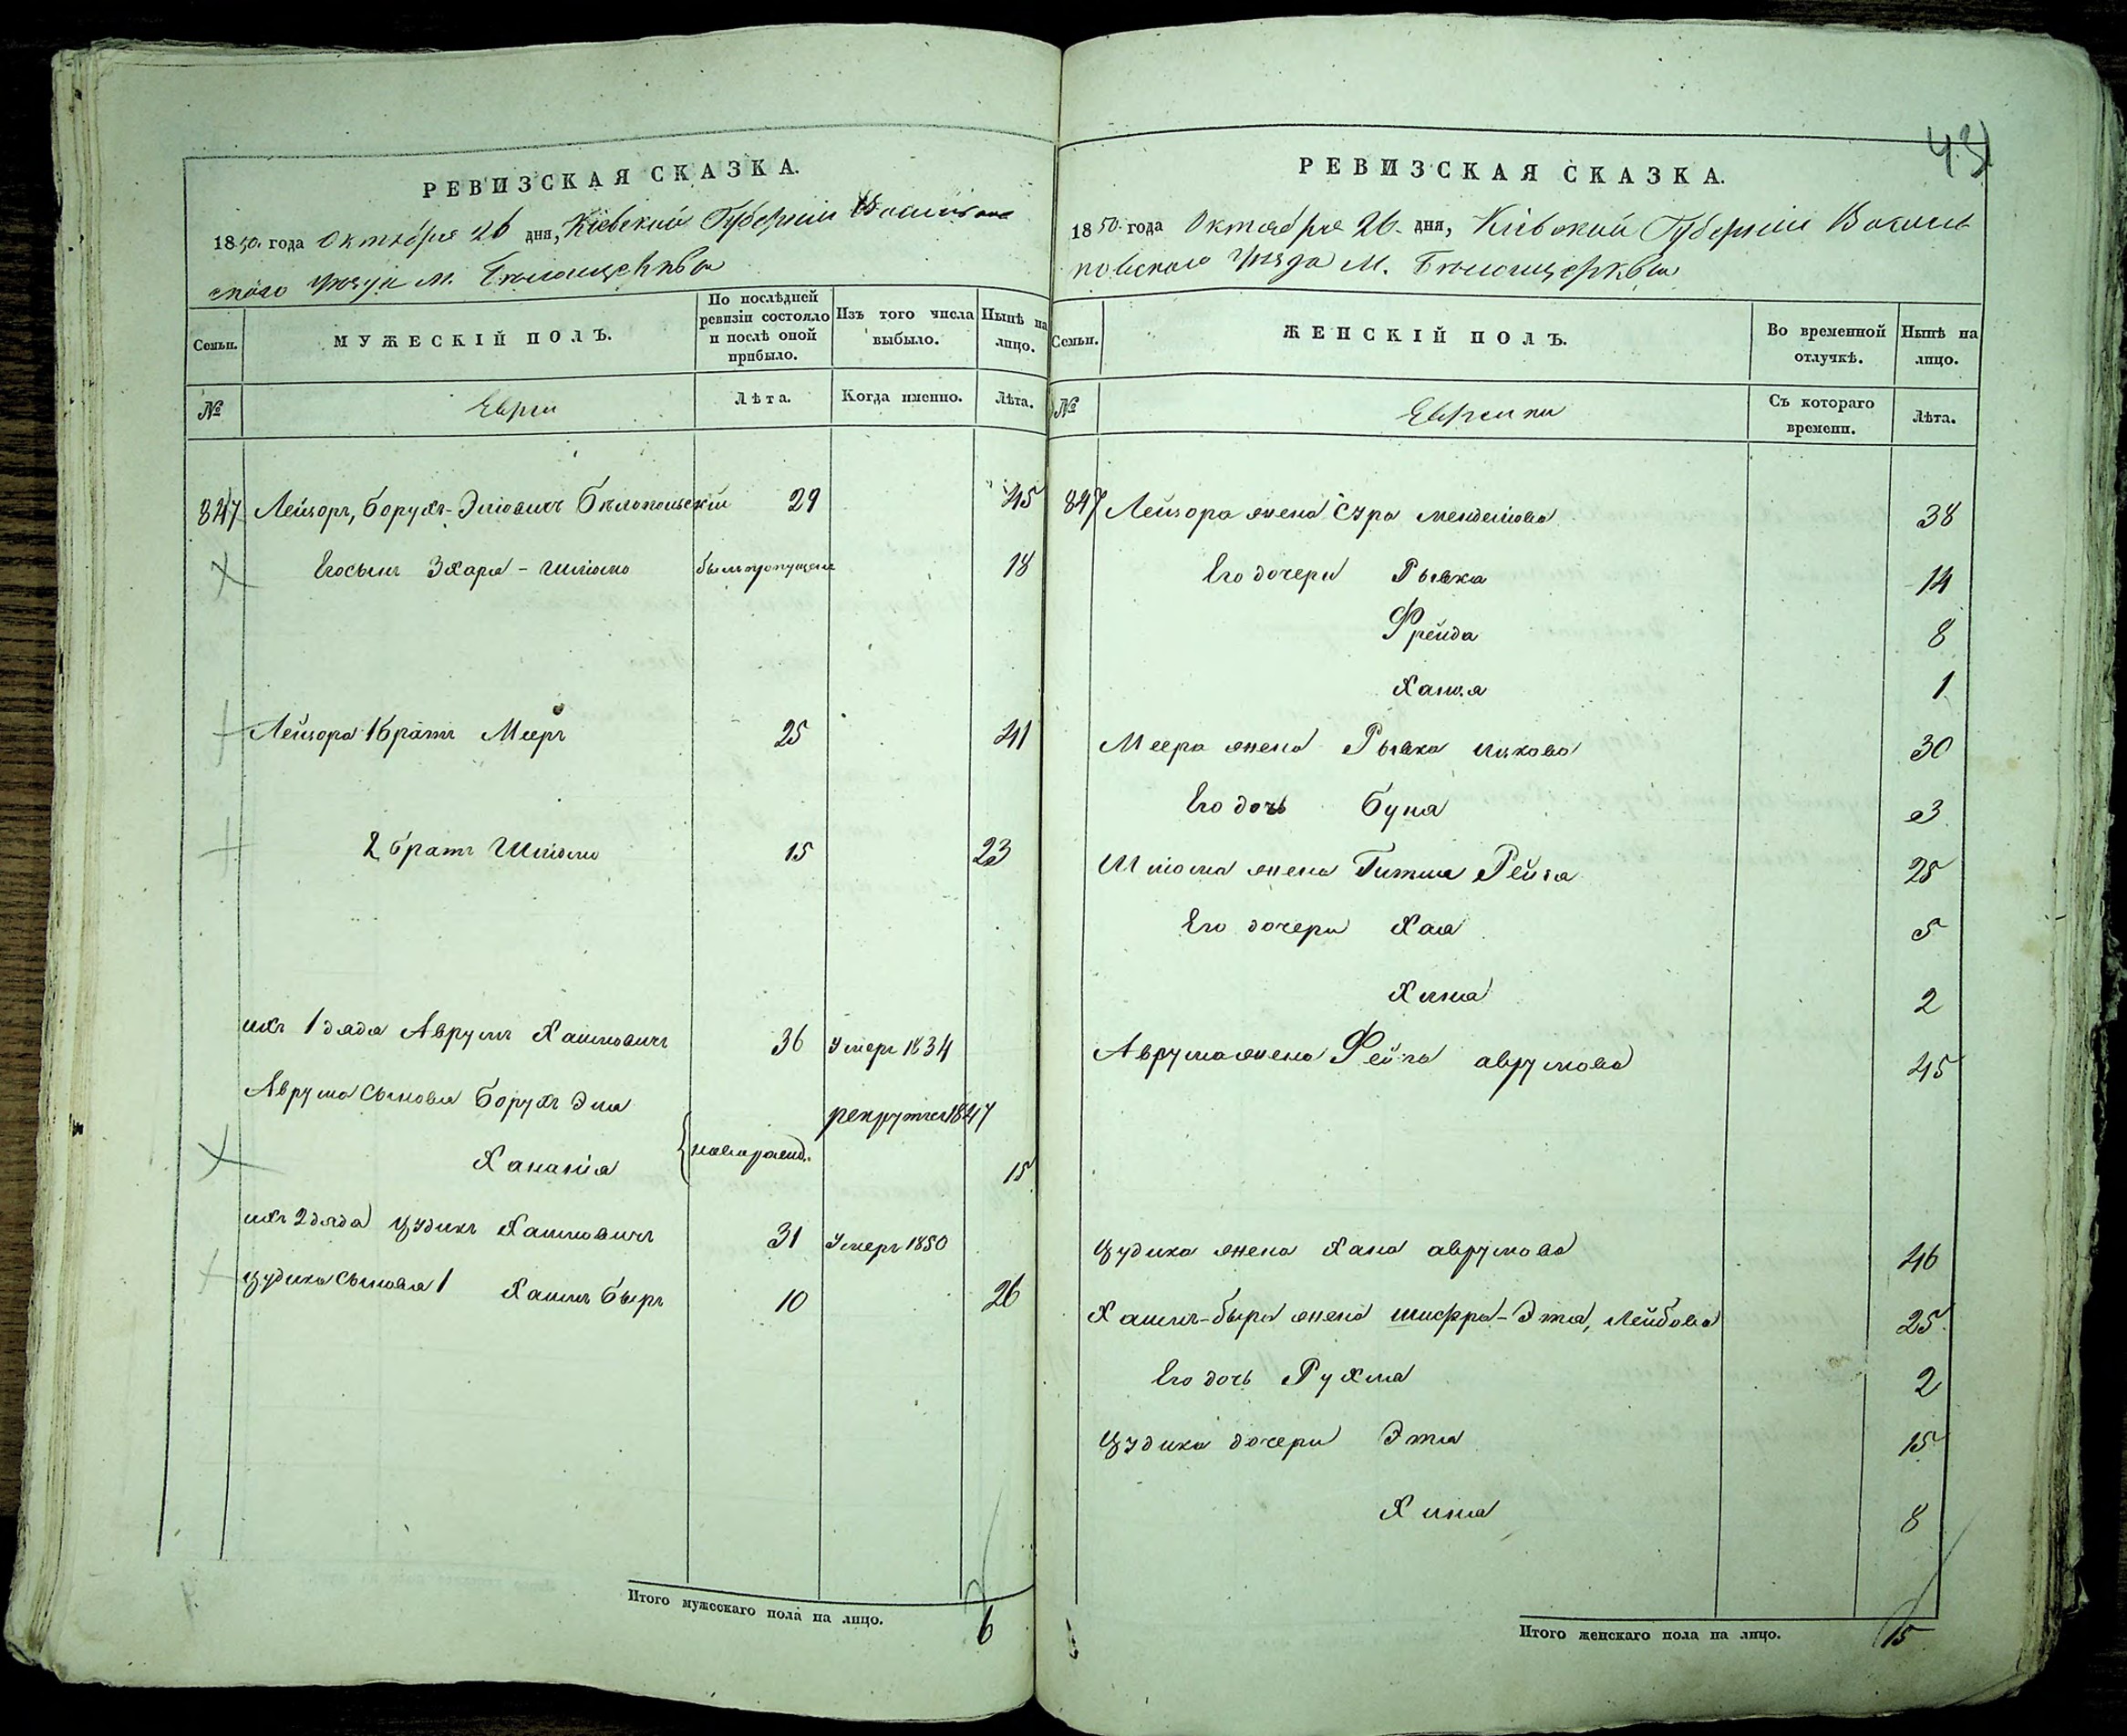 43
РЕВИЗСКАЯ СКАЗКА.
1850. года Октября 26 дня, Кіевской Губерніи Василько
скаго уезда м. Белоцерквы
Семьи.
МУЖЕСКІЙ ПОЛЪ.
По послѣдней ревизіи состояло и послѣ оной прибыло.
Изъ того числа выбыло.
Нынѣ на лицо.
№
Евреи
Лѣта.
Когда именно.
Лѣта.
847 Лейзоръ, Борухъ-Эліовичъ Бѣлопольскій 29 45
Его сынъ Зхаря-Шліомо былъ пропущенъ 18
Лейзора 1 братъ Мееръ 25 41
2 братъ Шліомо 15 23
ихъ 1 дядя Аврумъ Хаимовичъ 36 умеръ 1834
Аврума сыновья Борухъ Эля рекрутъ 1847
Хананія новорожд. 15
ихъ 2 дядя Цудикъ Хаимовичъ 31 умеръ 1850
Цудика сыновья 1 Хаимъ Беръ 10 26
Итого мужескаго пола на лицо. 6
РЕВИЗСКАЯ СКАЗКА.
1850. года Октября 26. дня, Кіевской Губерніи Василь
ковскаго уезда м. Белоцерквы
Семьи.
ЖЕНСКІЙ ПОЛЪ.
Во временной отлучкѣ.
Нынѣ на лицо.
№
Еврейки
Съ котораго времени.
Лѣта.
847 Лейзора жена Сура Менделіова 38
Его дочери Рывка 14
Фрейда 8
Ханя 1
Меера жена Рывка Ицкова 30
Его дочь Буня 3
Шліома жена Гитля Рейза 25
Его дочери Хая 5
Хиня 2
Аврума жена Фейга Аврумова 45
Цудика жена Хана Аврумова 46
Хаимъ-Бера жена Шифра-Этя, Лейбова 25
Его дочь Рухля 2
Цудика дочери Этя 15
Хиня 8
Итого женскаго пола на лицо. 15